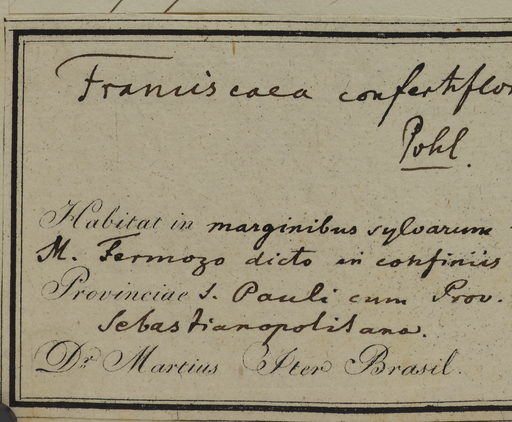 Franciscaea confertiflor
Pohl.
Habitat in marginibus sylvarum
M. Fermozo dicto in confiniis
Provinciae S. Pauli cum Prov.
Sebastianopolitana.
Dr. Martius Iter Brasil.